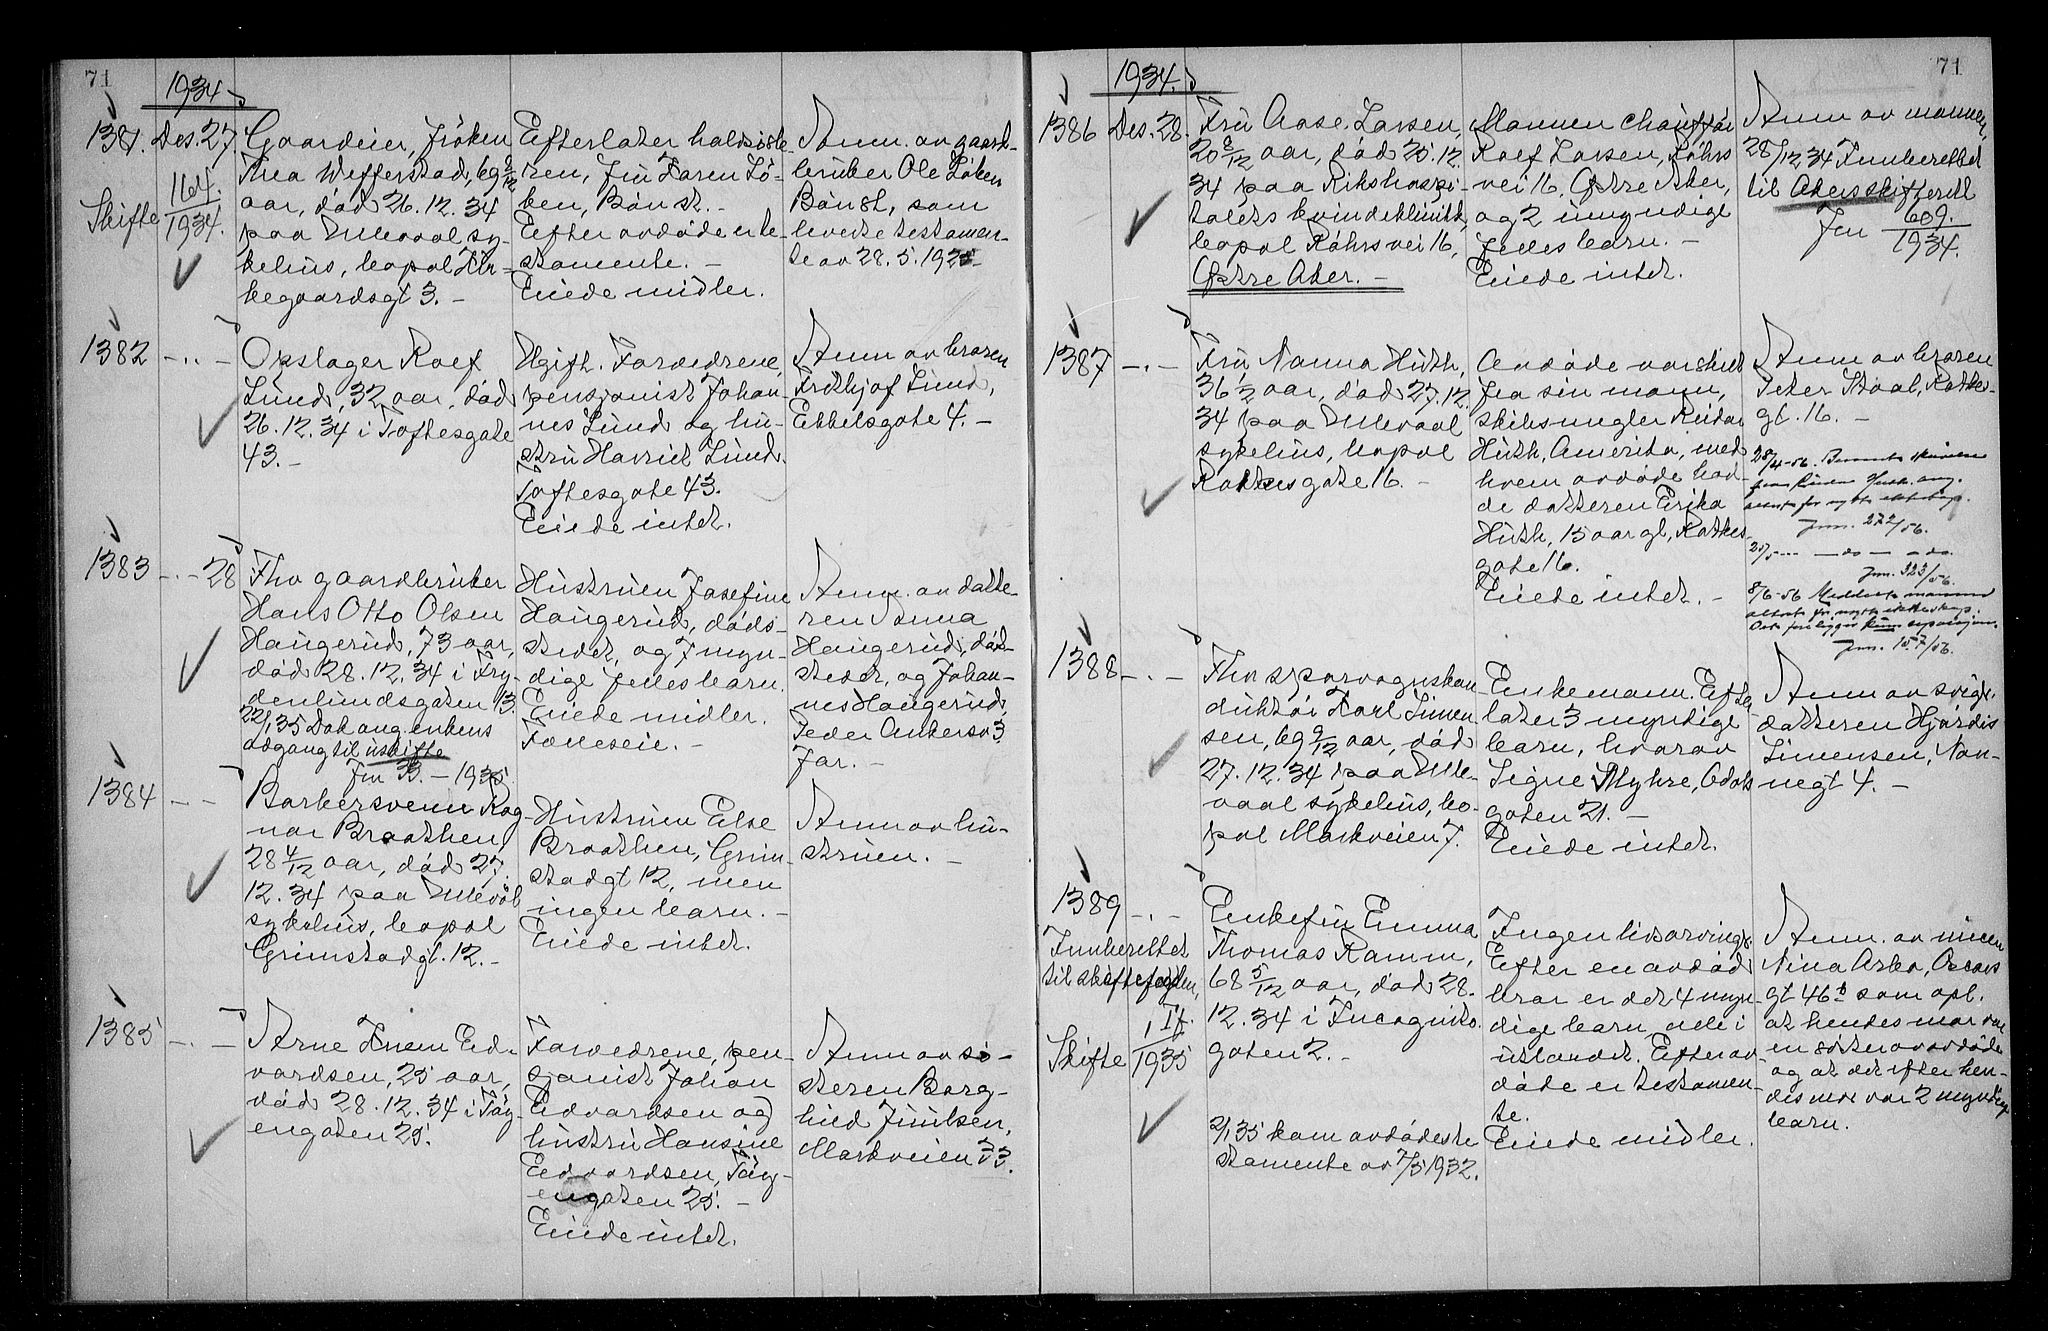 71
1934.
1381. Des. 27.
Skifte 164/1934.
Gaardeier, frøken
Thea Wefferstad, 69 9/12
aar, død 26.12.34
paa Ullevaal sy-
kehus, bopæl Kir-
kegaardsgt 3. -
Efterlater halvsøste-
ren, fru Karen Lø-
ken, Bøn st. -
Efter avdøde er te-
stamente. -
Eiede midler.
Anm. av gaard-
bruker Ole Løken
Bøn st, som
leverte testamen-
te av 28.5.1925
1382 -..-
Opslager Rolf
Lund, 32 aar, død
26.12.34 i Toftesgate
43. -
Ugift. Forældrene,
pensjonist Johan-
nes Lund og hu-
stru Harriet Lund.
Toftesgate 43.
Eiede intet.
Anm. av broren
Fridthjof Lund,
Ebbelsgate 4. -
1383 -.- 28
Fhv gaardbruker
Hans Otto Olsen
Haugerud, 73 aar,
død 28.12.34 i Fry-
denlundsgaten 13.
22/1 35 Dok ang. enkens
adgang til uskifte
Jnr 33. - 1935
Hustruen Josefine
Haugerud, døds-
stedet, og 7 myn-
dige felles barn.
Eiede midler.
Felleseie. -
Anm. av datte-
ren Anna
Haugerud, død-
stedet, og Johan-
nes Haugerud,
Peder Ankersv 3,
Jar. -
1384 - -
Barbersvenn Rag-
nar Braathen,
28 4/12 aar, død 27.
12.34 paa Ullevål
sykehus, bopæl
Grimstadgt. 12. -
Hustruen Else
Braathen, Grim-
stadgt 12, men
ingen barn. -
Eiede intet.
Anm av hu-
struen. -
1385 -.-
Arne Ed-
vardsen, 25 aar,
død 28.12.34 i Tøy-
engaten 25.
Forældrene, pen-
sjonist Johan
Edvardsen og
hustru Hansine
Edvardsen, Tøy-
engaten 25. -
Eiede intet.
Anm av sø-
steren Borg-
hild Juulsen,
Markveien 33.
71
1934.
1386 Des. 28.
Fru Aase Larsen,
20 8/12 aar, død 25.12.
34 paa Rikshospi-
talets kvindeklinikk,
bopæl Røhrs vei 16,
Østre Aker. -
Mannen chauffør
Rolf Larsen, Røhrs
vei 16, Østre Aker,
og 2 umyndige
felles barn. -
Eiede intet.
Anm av mannen,
28/12 34 Innberettet
til Akers skifterett
Jnr 609./1934.
1387 -.-
Fru Nanna Huth,
36 1/2 aar, død 27.12.
34 paa Ullevaal
sykehus, bopæl
Rathkesgate 16. -
Avdøde var skilt
fra sin mann,
skibsmegler Reidar
Huth, Amerika, med
hvem avdøde had-
de datteren Erika
Huth, 15 aar gl, Rathkes-
gate 16.
Eiede intet. -
Anm av broren
Peter Staal, Rathkes-
gt. 16. -
28/4-56.
ang.
attest for nytt ekteskap.
Jnr. 272/56.
25/5 --- -do- -do.
Jnr. 323/56.
8/6-56 Meddelt mannen
attest for nytt ekteskap.
Det foreligger kun separasjon.
Jnr. 157/56.
1388 -.-
Fhv sporvognskon-
duktør Karl Simen-
sen, 69 9/12 aar, død
27.12.34 paa Ulle-
vaal sykehus, bo-
pæl Markveien 7.
Enkemann. Efter-
later 3 myndige
barn, hvorav
Signe Myhre, Odals
gaten 21. -
Eiede intet.
Anm av svigr.
datteren Hjørdis
Simensen, Nan-
negt 4. -
1389 -.-
Innberettet
til skiftefogden,
Skifte 1 If./1935
Enkefru Emma
Thomas Ramm,
68 5/12 aar, død 28.
12.34 i Incognito-
gaten 2. -
2/1 35 kom avdødes te-
stamente av 7/5 1932.
Ingen livsarving.
Efter en avdød
bror er det 4 myn-
dige barn, alle i
utlandet. Efter av-
døde er testamen-
te.
Eiede midler.
Anm. av niecen
Nina Asbo, Oscars
gt 46 b som opl.
at hendes mor var
en søster av avdøde
og at det efter hen-
des mor var 2 myndige
barn.